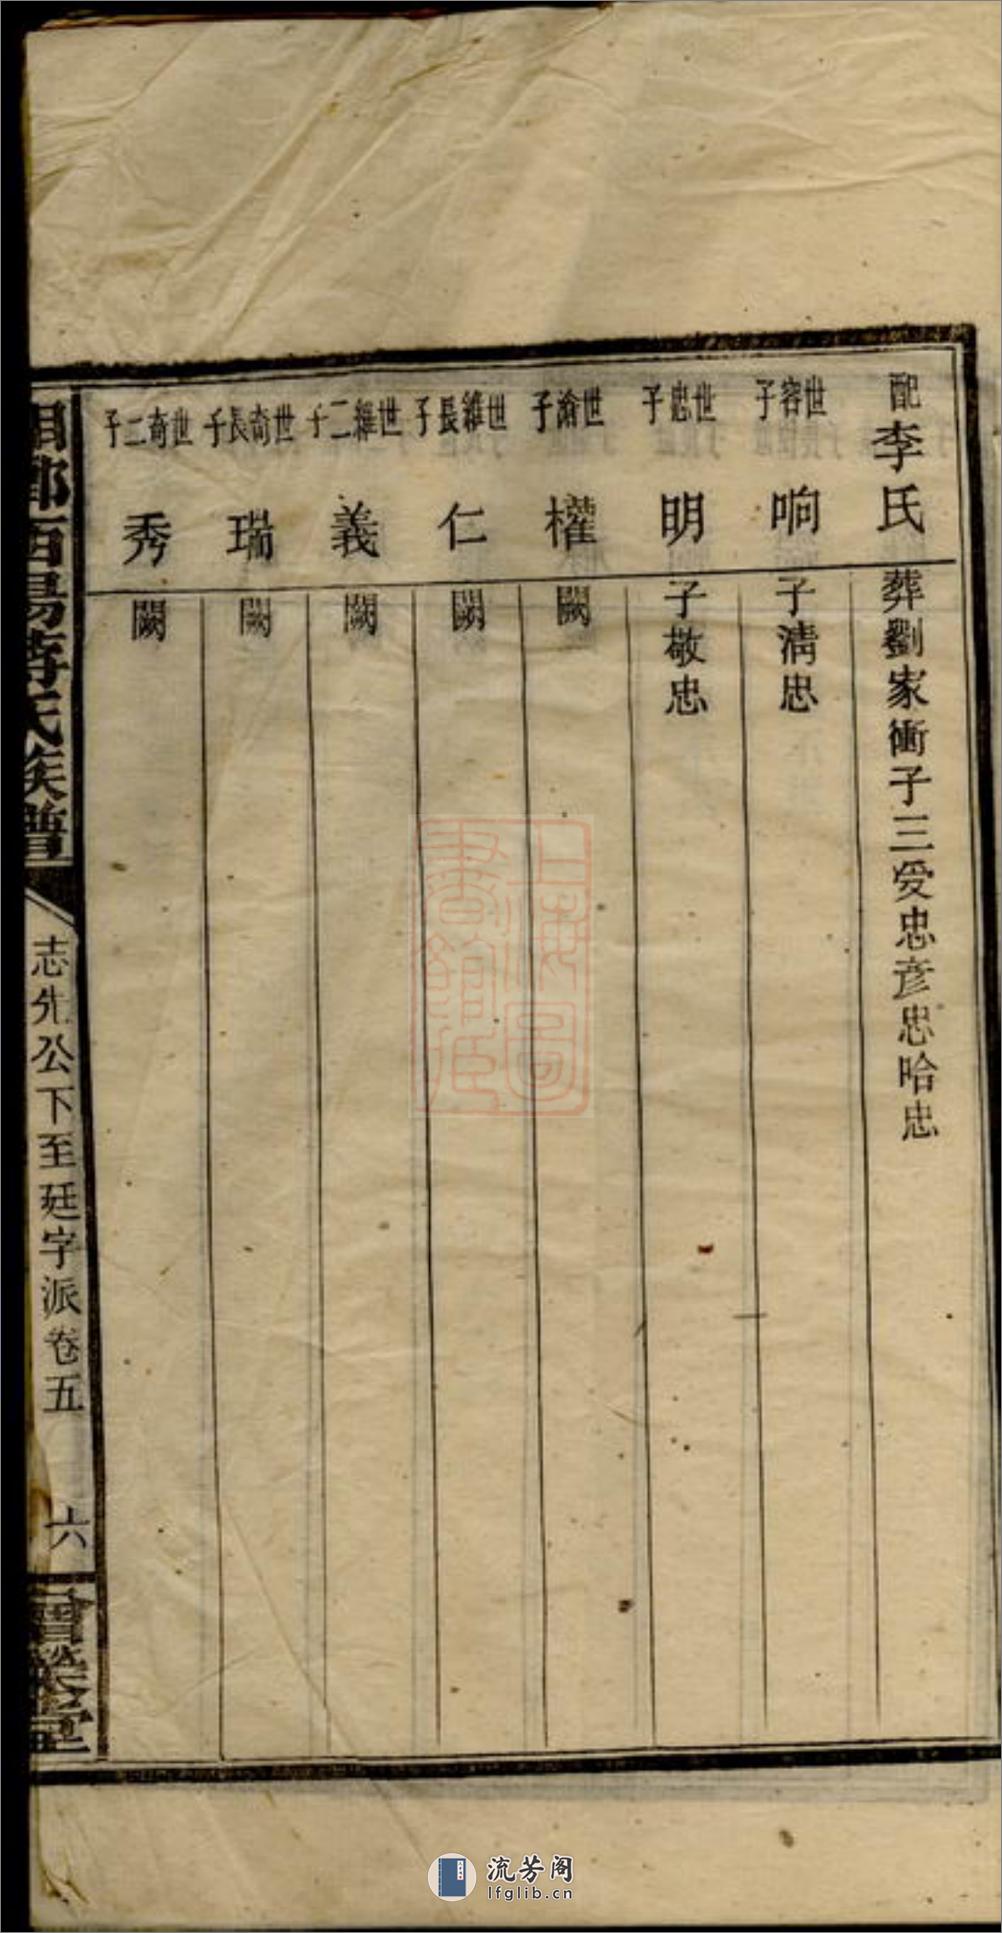 配李氏
葬劉家衝子三受忠彦忠哈忠
世容子
响
子淸忠
世忠子
明
子敬忠
世渝子
權
闕
世維長子
仁
闕
世維二子
義
闕
世奇長子
瑞
闕
世奇二子
秀
闕
湘鄉西陽蔣氏族譜
志先公下至廷字派卷五
六
堂
上海圖書館藏
流芳阁
lfglib.cn